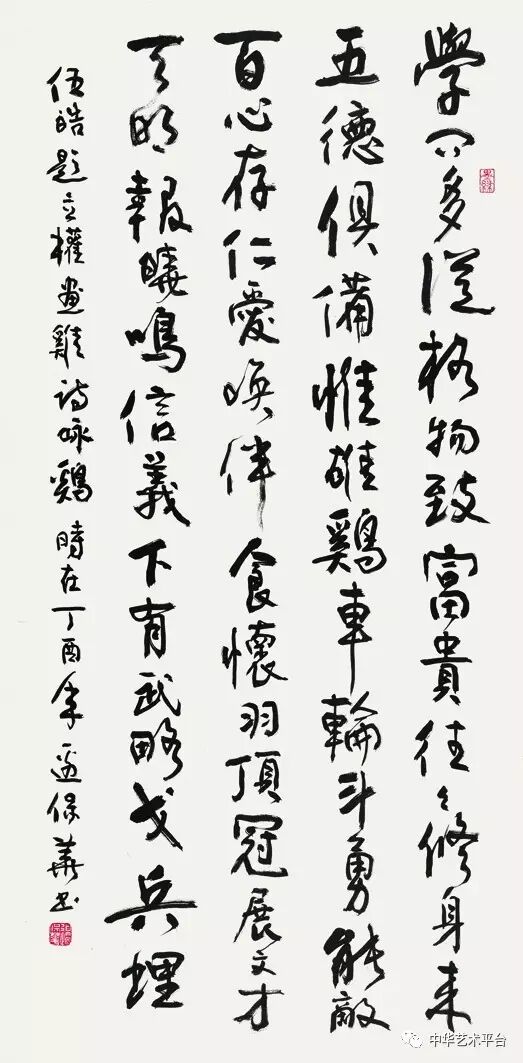 學问多從格物致富貴往々修身来
五德俱備惟雄鷄車輪斗勇能敵
百心存仁愛喚伴食懷羽頂冠展文才
天明報曉鳴信義下有武略戈兵埋
伍皓題立權畫雞诗咏鷄 時在丁酉年 保華书
中华艺术平台